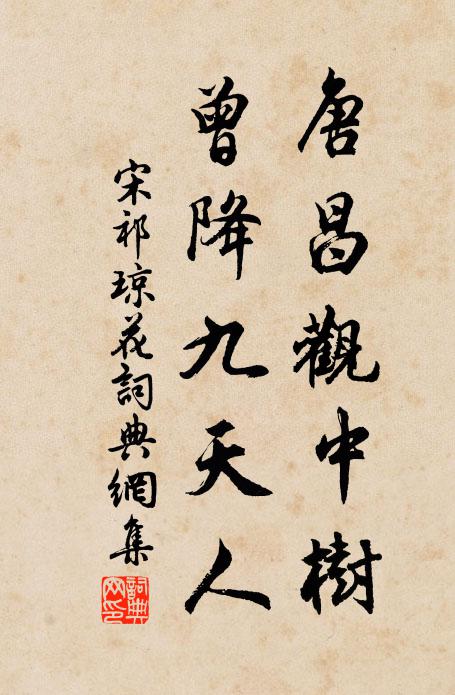 唐昌觀中樹
曾降九天人
宋祁琼花詞典網集
詞典网印